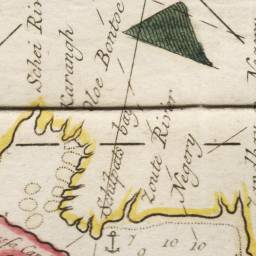 Schei Riv
Karaugh
Ploe Bontoe
Schilpads bay
Zoute River
Negery
Negery
7
9
10 10